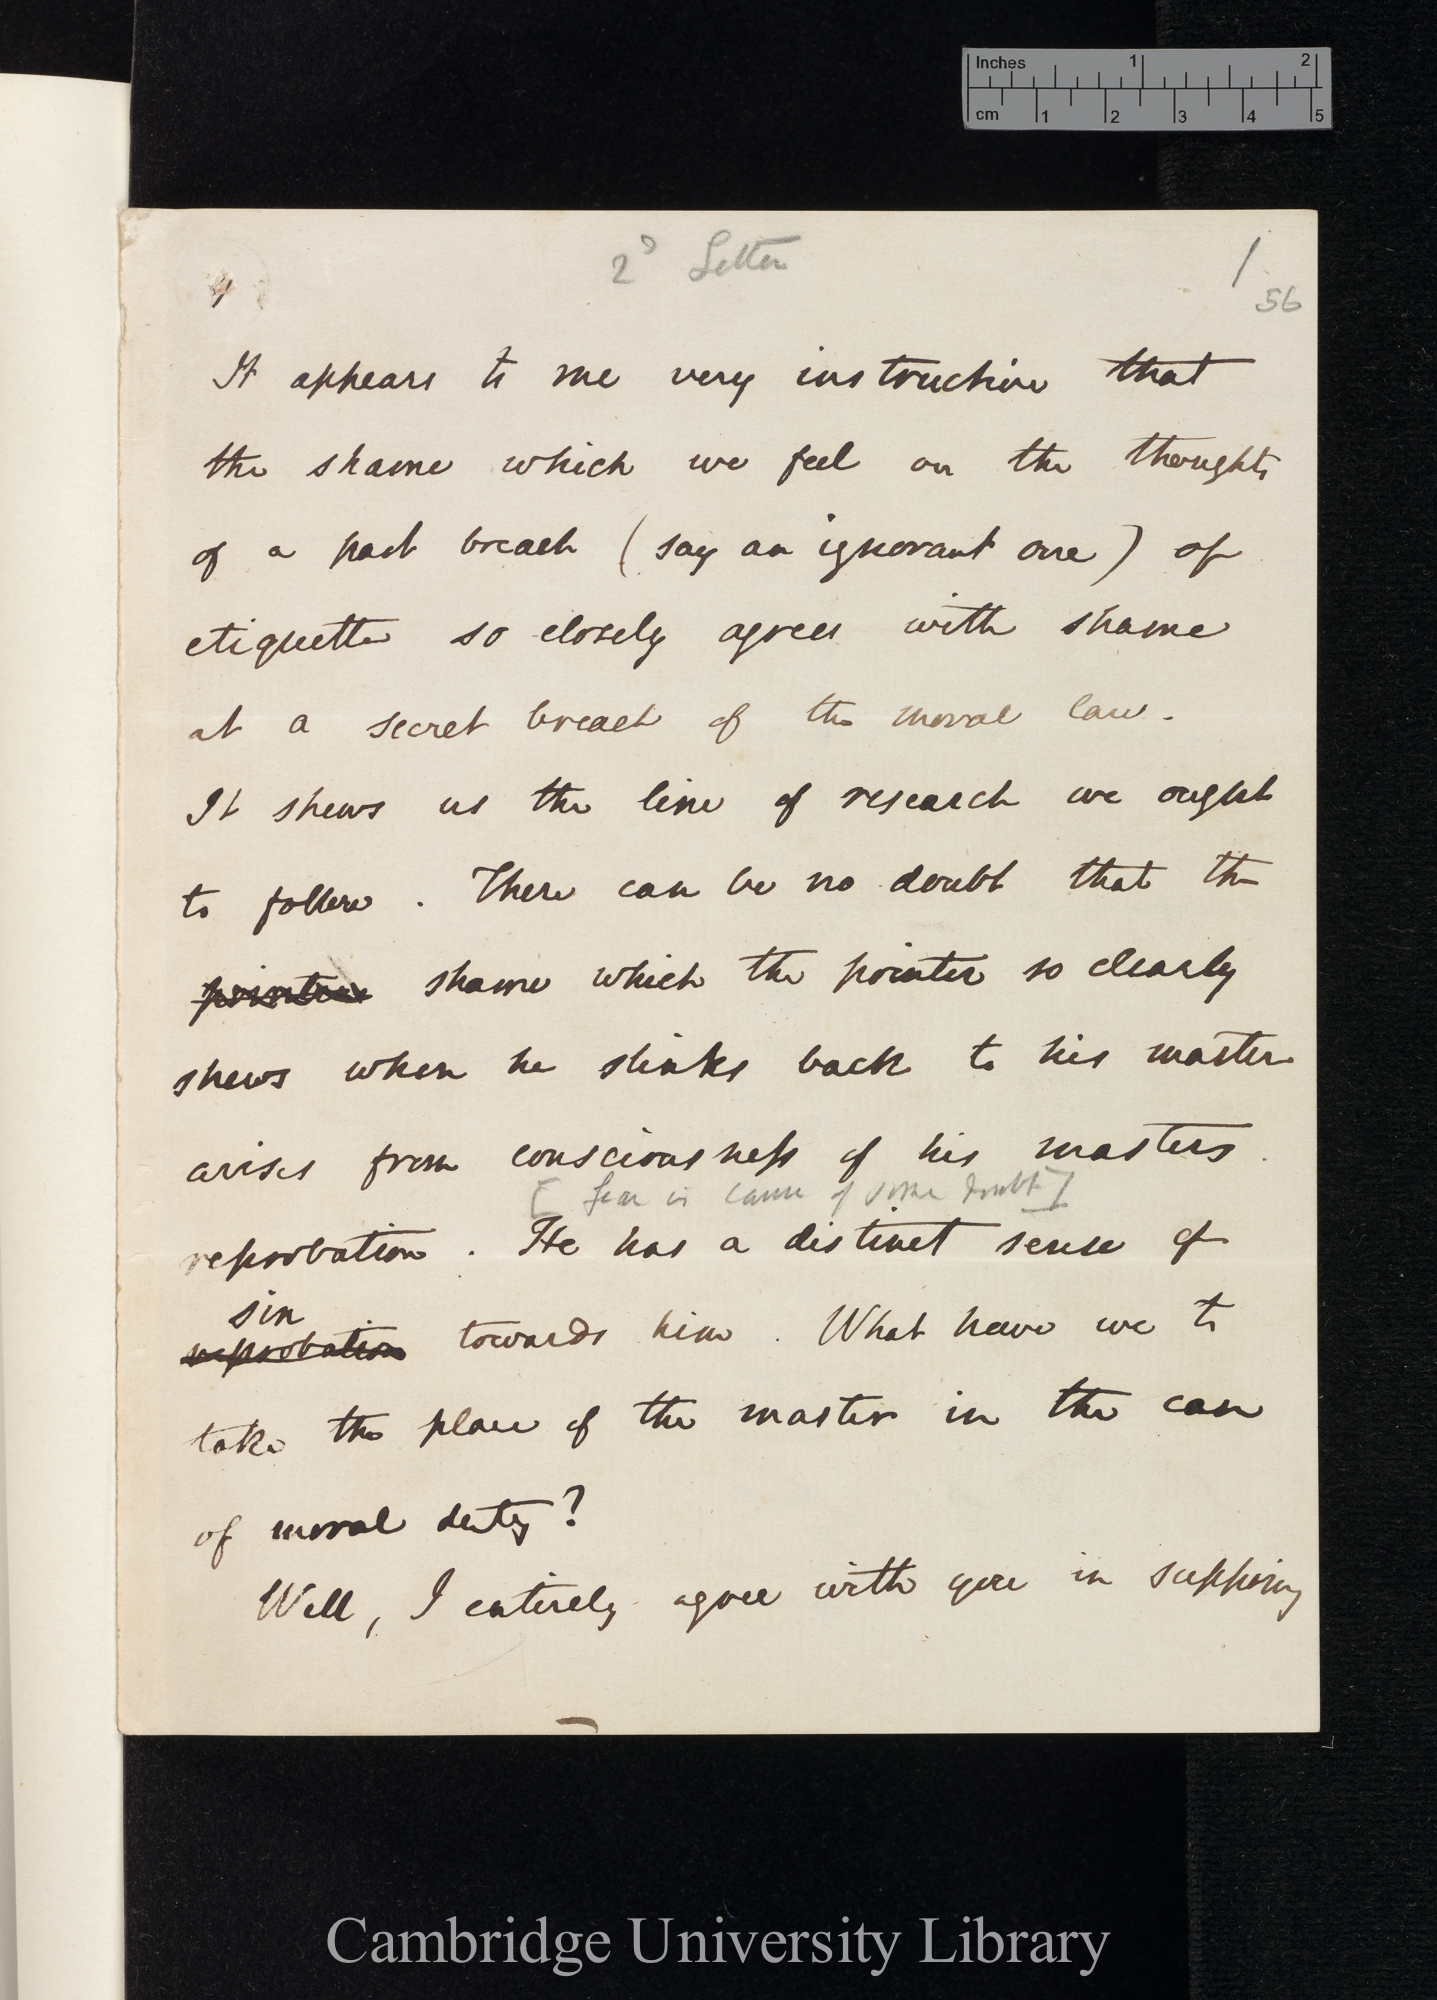 Inches 1 2
cm 1 2 3 4 5
2d Letter
1
56
It appears to me very instructive that
the shame which we feel on the thoughts
of a past breach (say an ignorant one) of
etiquette so closely agrees with shame
at a secret breach of the moral law.
It shews us the line of research we ought
to follow. There can be no doubt that the
pointer shame which the pointer so clearly
shews when he slinks back to his master
arises from consciousness of his masters
[fear is cause of some doubt]
reprobation. He has a distinct sense of
sin
reprobation towards him. What have we to
take the place of the master in the case
of moral duty?
Well, I entirely agree with you in supposing
Cambridge University Library